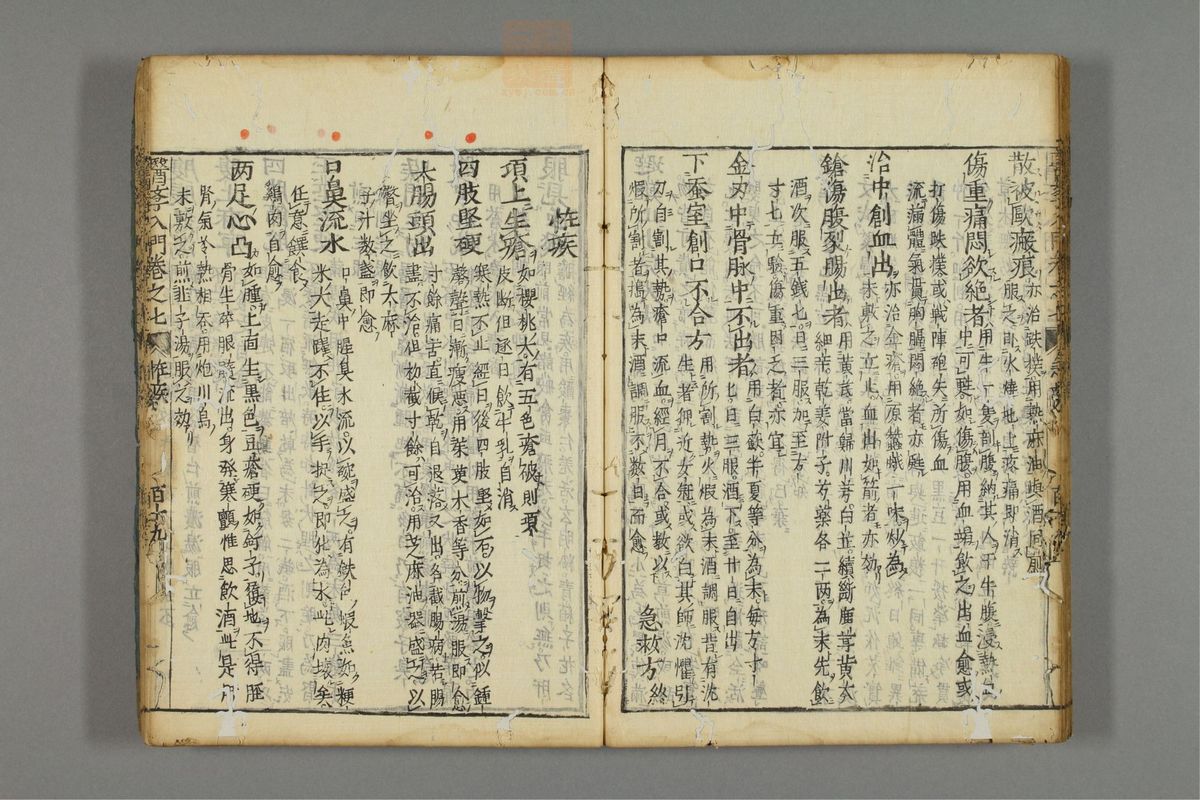 散被毆瘢痕 亦治跌撲用熱麻油與酒同煎
服之卧火燒地上疼痛即消
傷重痛悶欲絕者 用牛一隻剖腹納其人于牛腹浸熱血
中可甦如傷腹用血竭飲之出血愈或
打傷跌撲或戰陣砲矢所傷血
流滿體氣貫胸膈悶絕者亦甦
治中創血出 亦治金瘡用原蠶蛾一味炒為
末敷之立止血出如箭者亦効
鎗傷腹裂腸出者 用黃芪當歸川芎白芷續斷鹿茸黃
細辛乾姜附子芍藥各二兩為末先飲
酒次服五錢七日三服加至方
寸匕立驗傷重困乏者亦宜
金刃中骨脉中不出者 用白蘞半夏等分為末每方寸匕
七日三服酒下至廿日自出
下蚕室創口不合方 用所割勢火煆為末酒調服昔有沈
生者狎近女冠或欲白其師沈懼引
刃自割其勢瘡口流血經月不合或教以
所割者搗為末酒調服不數日而愈
急救方終
恠疾
項上生瘡 如櫻桃大有五色瘡破則項
皮斷但逐日飲牛乳自消
四肢堅硬 寒熱不止經日後四肢堅如石以物擊之似鍾
磬聲日漸瘦惡用茱萸木香等分煎湯服即愈
大腸頭出 寸餘痛苦直候乾自退落又出名截腸病若腸
盡不治但初截寸餘可治用芝麻油器盛之以
臀坐之飲大麻
子汁數盞即愈
口鼻流水 口鼻中腥臭水流以碗盛之有鉄色蝦魚如粳
米大走躍不住以手捉之即化為水此肉壞矣
任意饌食
雞肉自愈
两足心凸 如腫上面生黑色豆瘡硬如釘子履地不得脛
骨生碎眼髓流出身發寒顫惟思飲酒此是肝
腎氣冷熱相吞用炮川烏
末敷之煎韭子湯服之効
醫學入門卷之七 恠疾 百十九